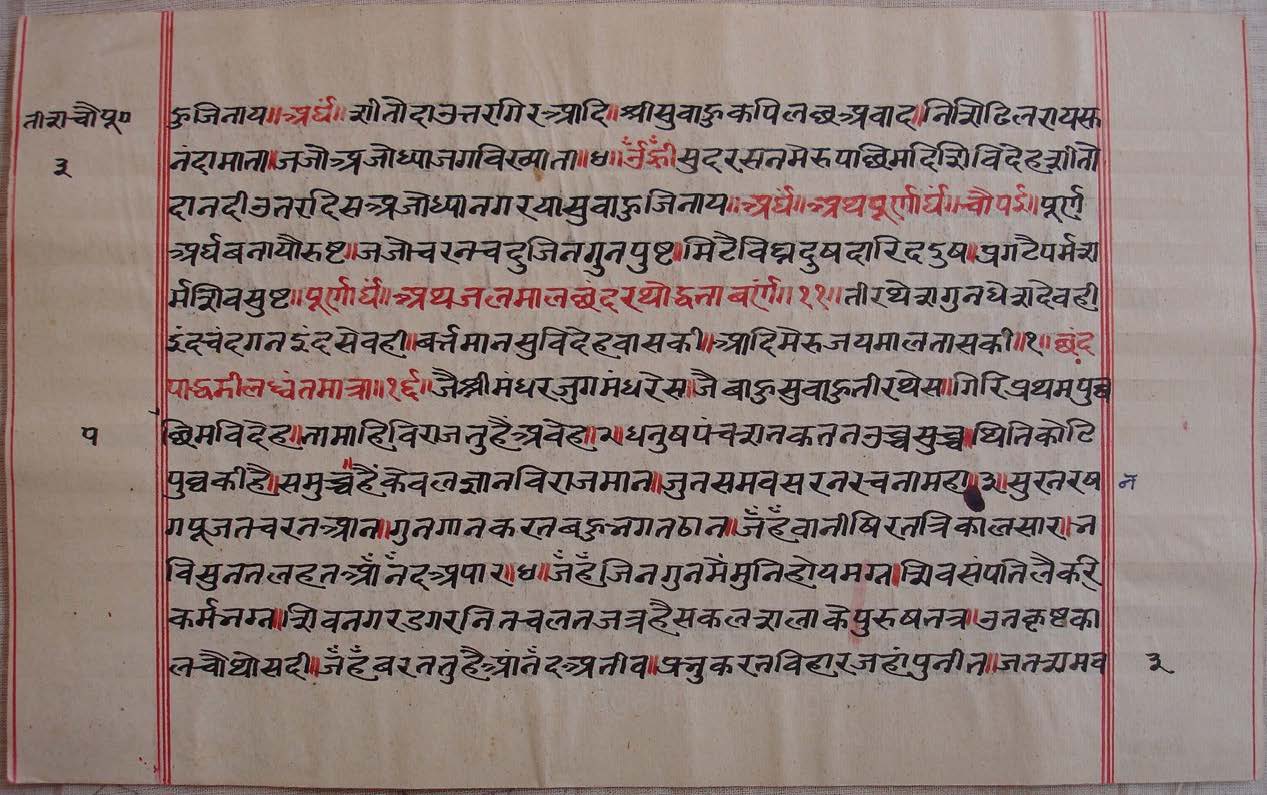 ती॰रा॰चौ॰पू॰
३
हुजिनाय॥अर्घं॥शीतोदाउत्तरगिरआदि॥श्रीसुवाहुकपिलछअवाद॥निशिढिलरायस
नंदामाता॥जजौअजोध्याजगविख्याता॥४॥ॐह्रींसुदरसनमेरुपाछिमदिशिविदेहशीतो
दानदीउतरदिसअजोध्यानगरयासुवाहुजिनाय॥अर्घं॥अथपूर्णार्घं॥चौपई॥पूर्ण
अर्घबनायौरुष्ट॥जजोचरनचदुजिनगुनपुष्ट॥मिटैविघ्नदुषदारिददुष॥प्रगटैपर्मश
र्मशिवसुष्ट॥पूर्णार्घं॥अथजलमालछंदरथोद्धताबर्ण॥११॥तीरथेशगुनधेशदेवही
इंदचंदगनइंदसेवही॥बर्त्तमानसुविदेहवासकी॥आदिमेरुजयमालतासकी॥१॥छंद
पाद्धमीलघ्वंतमात्रा॥१६॥जैश्रीमंधरजुगमंधरेस॥जैबाहुसुवाहुतीरथेस॥गिरिप्रथमपुव्व
प
छिमविदेह॥तामाहिविराजतुहैंअवेहा॥२॥धनुषपंचशतकततनउच्चसुच्च॥थितिकोटि
पुव्वकीहै॥समुच्चहैंकेवलज्ञानविराजमान॥जुतसमवसरनरचनामहा॥३॥सुरनरष
न
गपूजतचरनआन॥गुनगानकरतबहुनगतठान॥जँहँवानीषिरतत्रिकालसार॥न
विसुनतलहतआँनँदअपार॥४॥जँहँजिनगुनमैंमुनिहोयमग्न॥शिवसंपतिलैकरि
कर्मनग्न॥शिवनगरडगरनितचलतजत्रहैसकलशलाकेपुरुषतत्र॥उतकृष्टका
लचौथोसदी॥जँहँबरततुहैआंनँदअतीव॥प्रभुकरतविहारजहांपुनीत॥जतसमव
३